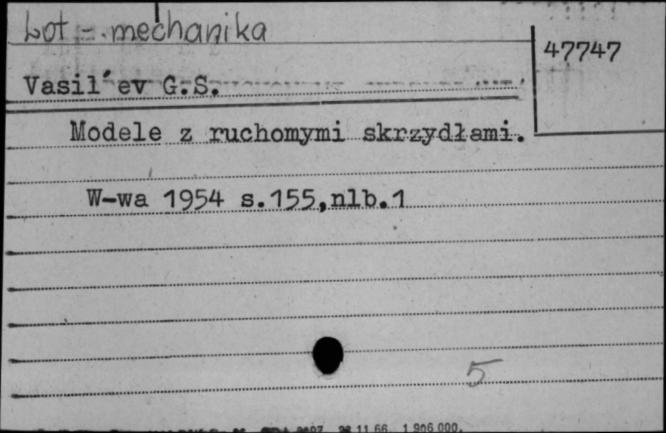 Lot - mechanika
47747
Vasil'ev G.S.
Modele z ruchomymi skrzydłami.
W-wa 1954 s.155,nlb.1
5
28.11.66 1.906.000.